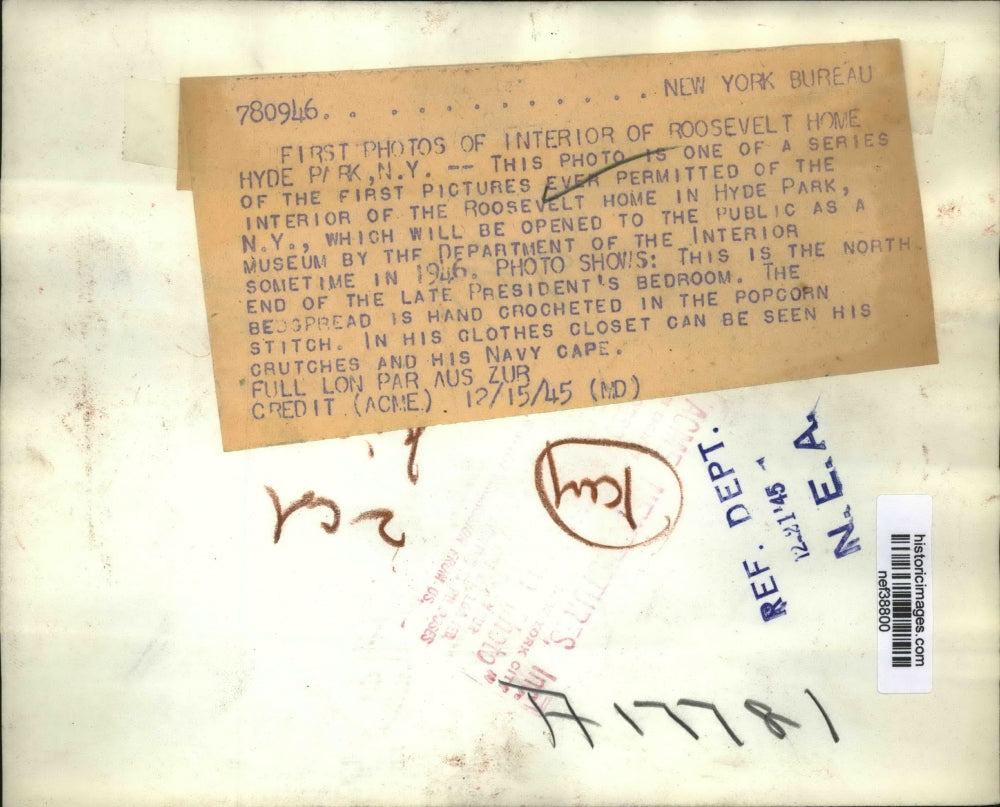 780946. . . . . . . . . . . . NEW YORK BUREAU
FIRST PHOTOS OF INTERIOR OF ROOSEVELT HOME
HYDE PARK, N.Y. -- THIS PHOTO IS ONE OF A SERIES
OF THE FIRST PICTURES EVER PERMITTED OF THE
INTERIOR OF THE ROOSEVELT HOME IN HYDE PARK,
N.Y., WHICH WILL BE OPENED TO THE PUBLIC AS A
MUSEUM BY THE DEPARTMENT OF THE INTERIOR
SOMETIME IN 1946. PHOTO SHOWS: THIS IS THE NORTH
END OF THE LATE PRESIDENT'S BEDROOM. THE
BEDSPREAD IS HAND CROCHETED IN THE POPCORN
STITCH. IN HIS CLOTHES CLOSET CAN BE SEEN HIS
CRUTCHES AND HIS NAVY CAPE.
FULL LON PAR AUS ZUR
CREDIT (ACME) 12/15/45 (MD)
2 col
REF. DEPT.
12-21-45
N.E.A.
ACME
FROM US,
YORK CITY
historicimages.com
nef38800